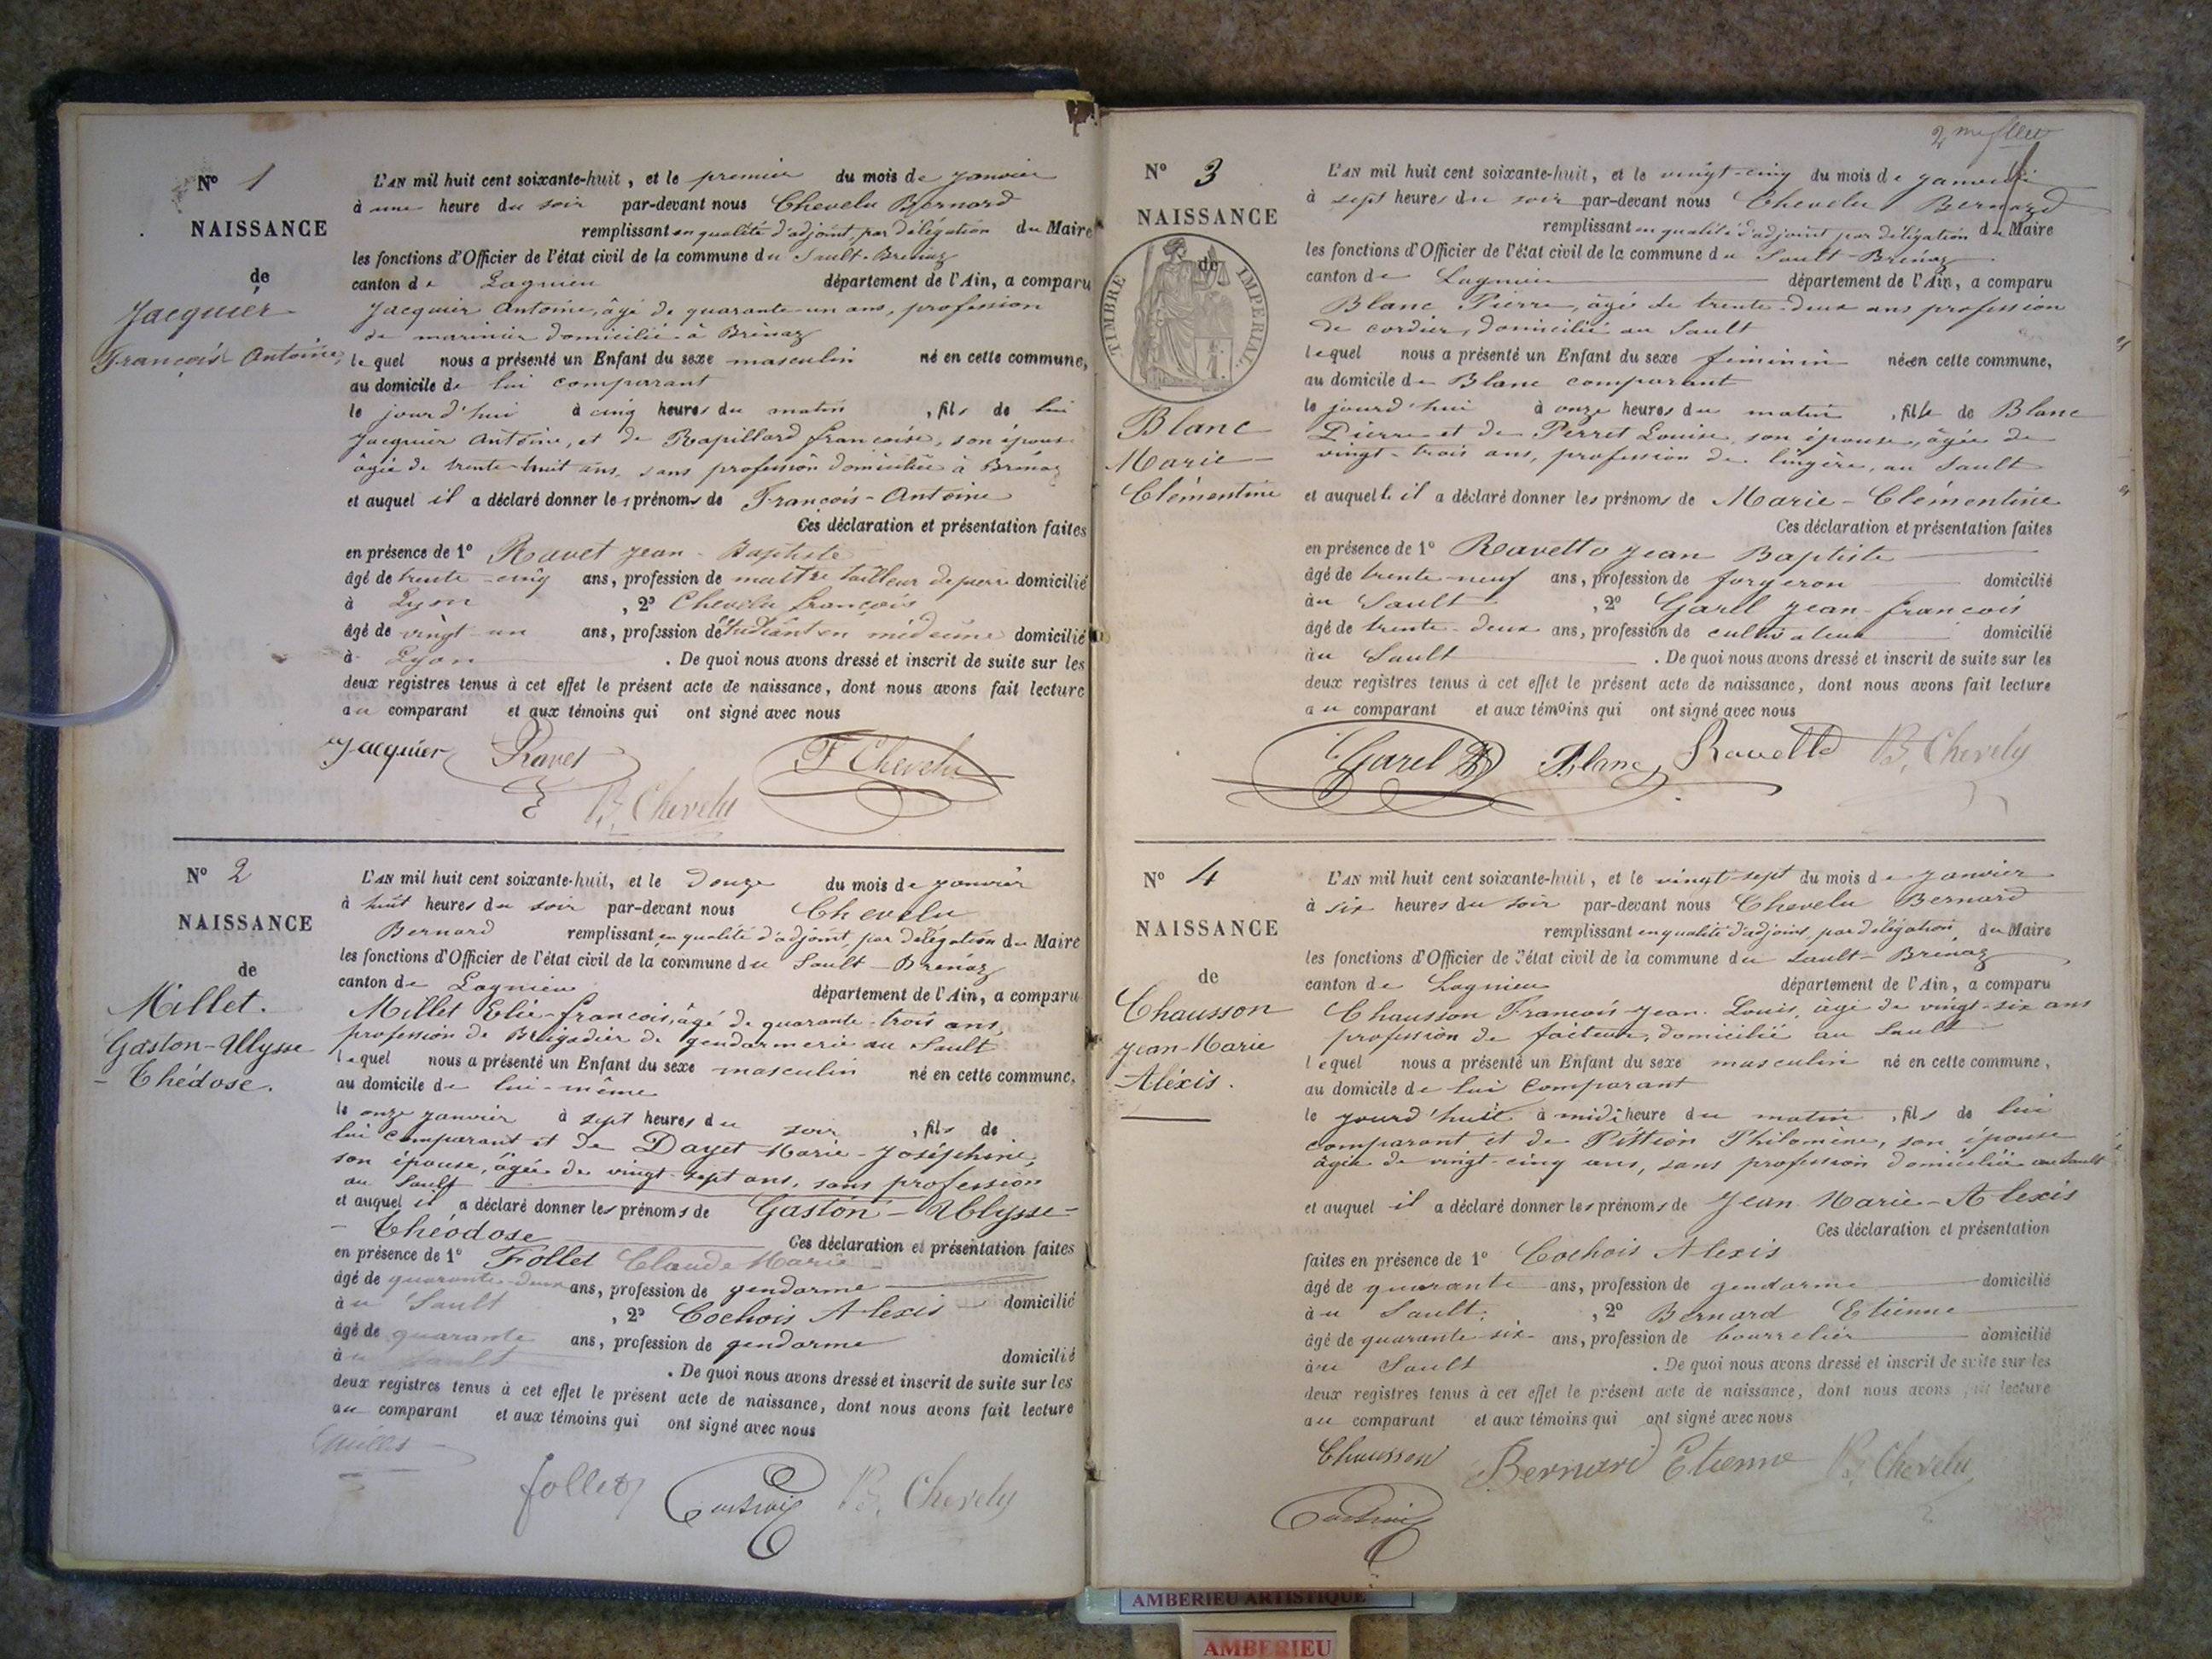 Nº 1
NAISSANCE
de
Jacquier
François Antoine
L'AN mil huit cent soixante-huit, et le premier du mois de janvier
à une heure du soir par-devant nous Chevelu Bernard
remplissant en qualité d'adjoint, par délégation du Maire
les fonctions d'Officier de l'état civil de la commune du Sault-Brénaz
canton de Lagnieu département de l'Ain, a comparu
Jacquier Antoine, âgé de quarante-un ans, profession
de marinier domicilié à Brénaz
lequel nous a présenté un Enfant du sexe masculin né en cette commune,
au domicile de lui comparant
le jourd'hui à cinq heures du matin, fils de lui
Jacquier Antoine, et de Rapillard françoise, son épouse
âgée de trente-huit ans, sans profession domiciliée à Brénaz
et auquel il a déclaré donner les prénoms de François-Antoine
Ces déclaration et présentation faites
en présence de 1º Ravet Jean-Baptiste
âgé de trente-cinq ans, profession de maître tailleur de pierre domicilié
à Lyon, 2º Chevelu françois
âgé de vingt-un ans, profession de étudiant en médecine domicilié
à Lyon. De quoi nous avons dressé et inscrit de suite sur les
deux registres tenus à cet effet le présent acte de naissance, dont nous avons fait lecture
au comparant et aux témoins qui ont signé avec nous
Jacquier Ravet F Chevelu
B. Chevelu
Nº 2
NAISSANCE
de
Millet.
Gaston-Ulysse
-Thédose.
L'AN mil huit cent soixante-huit, et le douze du mois de janvier
à huit heures du soir par-devant nous Chevelu
Bernard remplissant en qualité d'adjoint, par délégation du Maire
les fonctions d'Officier de l'état civil de la commune du Sault-Brénaz
canton de Lagnieu département de l'Ain, a comparu
Millet Elie-françois, âgé de quarante-trois ans,
profession de Brigadier de gendarmerie au Sault
lequel nous a présenté un Enfant du sexe masculin né en cette commune,
au domicile de lui-même
le onze janvier à sept heures du soir, fils de
lui comparant et de Dayet Marie-Joséphine,
son épouse, âgée de vingt-sept ans, sans profession
au Sault
et auquel il a déclaré donner les prénoms de Gaston-Ulysse-
-Théodose Ces déclaration et présentation faites
en présence de 1º Follet Claude Marie
âgé de quarante-deux ans, profession de gendarme domicilié
au Sault, 2º Cochois Alexis
âgé de quarante ans, profession de gendarme domicilié
au Sault. De quoi nous avons dressé et inscrit de suite sur les
deux registres tenus à cet effet le présent acte de naissance, dont nous avons fait lecture
au comparant et aux témoins qui ont signé avec nous
Millet
follet Cochois B. Chevelu
2me
Nº 3
NAISSANCE
de
TIMBRE IMPERIAL
Blanc
Marie-
Clémentine
L'AN mil huit cent soixante-huit, et le vingt-cinq du mois de janvier
à sept heures du soir par-devant nous Chevelu Bernard
remplissant en qualité d'adjoint par délégation du Maire
les fonctions d'Officier de l'état civil de la commune du Sault-Brénaz
canton de Lagnieu département de l'Ain, a comparu
Blanc Pierre, âgé de trente-deux ans profession
de cordier, domicilié au Sault
lequel nous a présenté un Enfant du sexe féminin née en cette commune,
au domicile de Blanc comparant
le jourd'hui à onze heures du matin, fille de Blanc
Pierre et de Perret Louise, son épouse, âgée de
vingt-trois ans, profession de lingère, au Sault
et auquelle il a déclaré donner les prénoms de Marie-Clémentine
Ces déclaration et présentation faites
en présence de 1º Ravetto Jean Baptiste
âgé de trente-neuf ans, profession de forgeron domicilié
au Sault, 2º Garel Jean-françois
âgé de trente-deux ans, profession de cultivateur domicilié
au Sault. De quoi nous avons dressé et inscrit de suite sur les
deux registres tenus à cet effet le présent acte de naissance, dont nous avons fait lecture
au comparant et aux témoins qui ont signé avec nous
Garel Blanc Ravetto B. Chevelu
Nº 4
NAISSANCE
de
Chausson
Jean-Marie
Aléxis.
L'AN mil huit cent soixante-huit, et le vingt-sept du mois de janvier
à six heures du soir par-devant nous Chevelu Bernard
remplissant en qualité d'adjoint, par délégation du Maire
les fonctions d'Officier de l'état civil de la commune du Sault-Brénaz
canton de Lagnieu département de l'Ain, a comparu
Chausson François-Jean-Louis, âgé de vingt-six ans
profession de facteur, domicilié au Sault
lequel nous a présenté un Enfant du sexe masculin né en cette commune,
au domicile de lui Comparant
le jourd'hui à midi heure du matin, fils de lui
comparant et de Pittion Philomène, son épouse
âgée de vingt-cinq ans, sans profession domiciliée au Sault
et auquel il a déclaré donner les prénoms de Jean-Marie-Alexis
Ces déclaration et présentation
faites en présence de 1º Cochois Alexis
âgé de quarante ans, profession de gendarme domicilié
au Sault, 2º Bernard Etienne
âgé de quarante-six ans, profession de bourrelier domicilié
au Sault. De quoi nous avons dressé et inscrit de suite sur les
deux registres tenus à cet effet le présent acte de naissance, dont nous avons fait lecture
au comparant et aux témoins qui ont signé avec nous
Chausson Bernard Etienne B. Chevelu
Cochois
AMBERIEU ARTISTIQUE
AMBERIEU